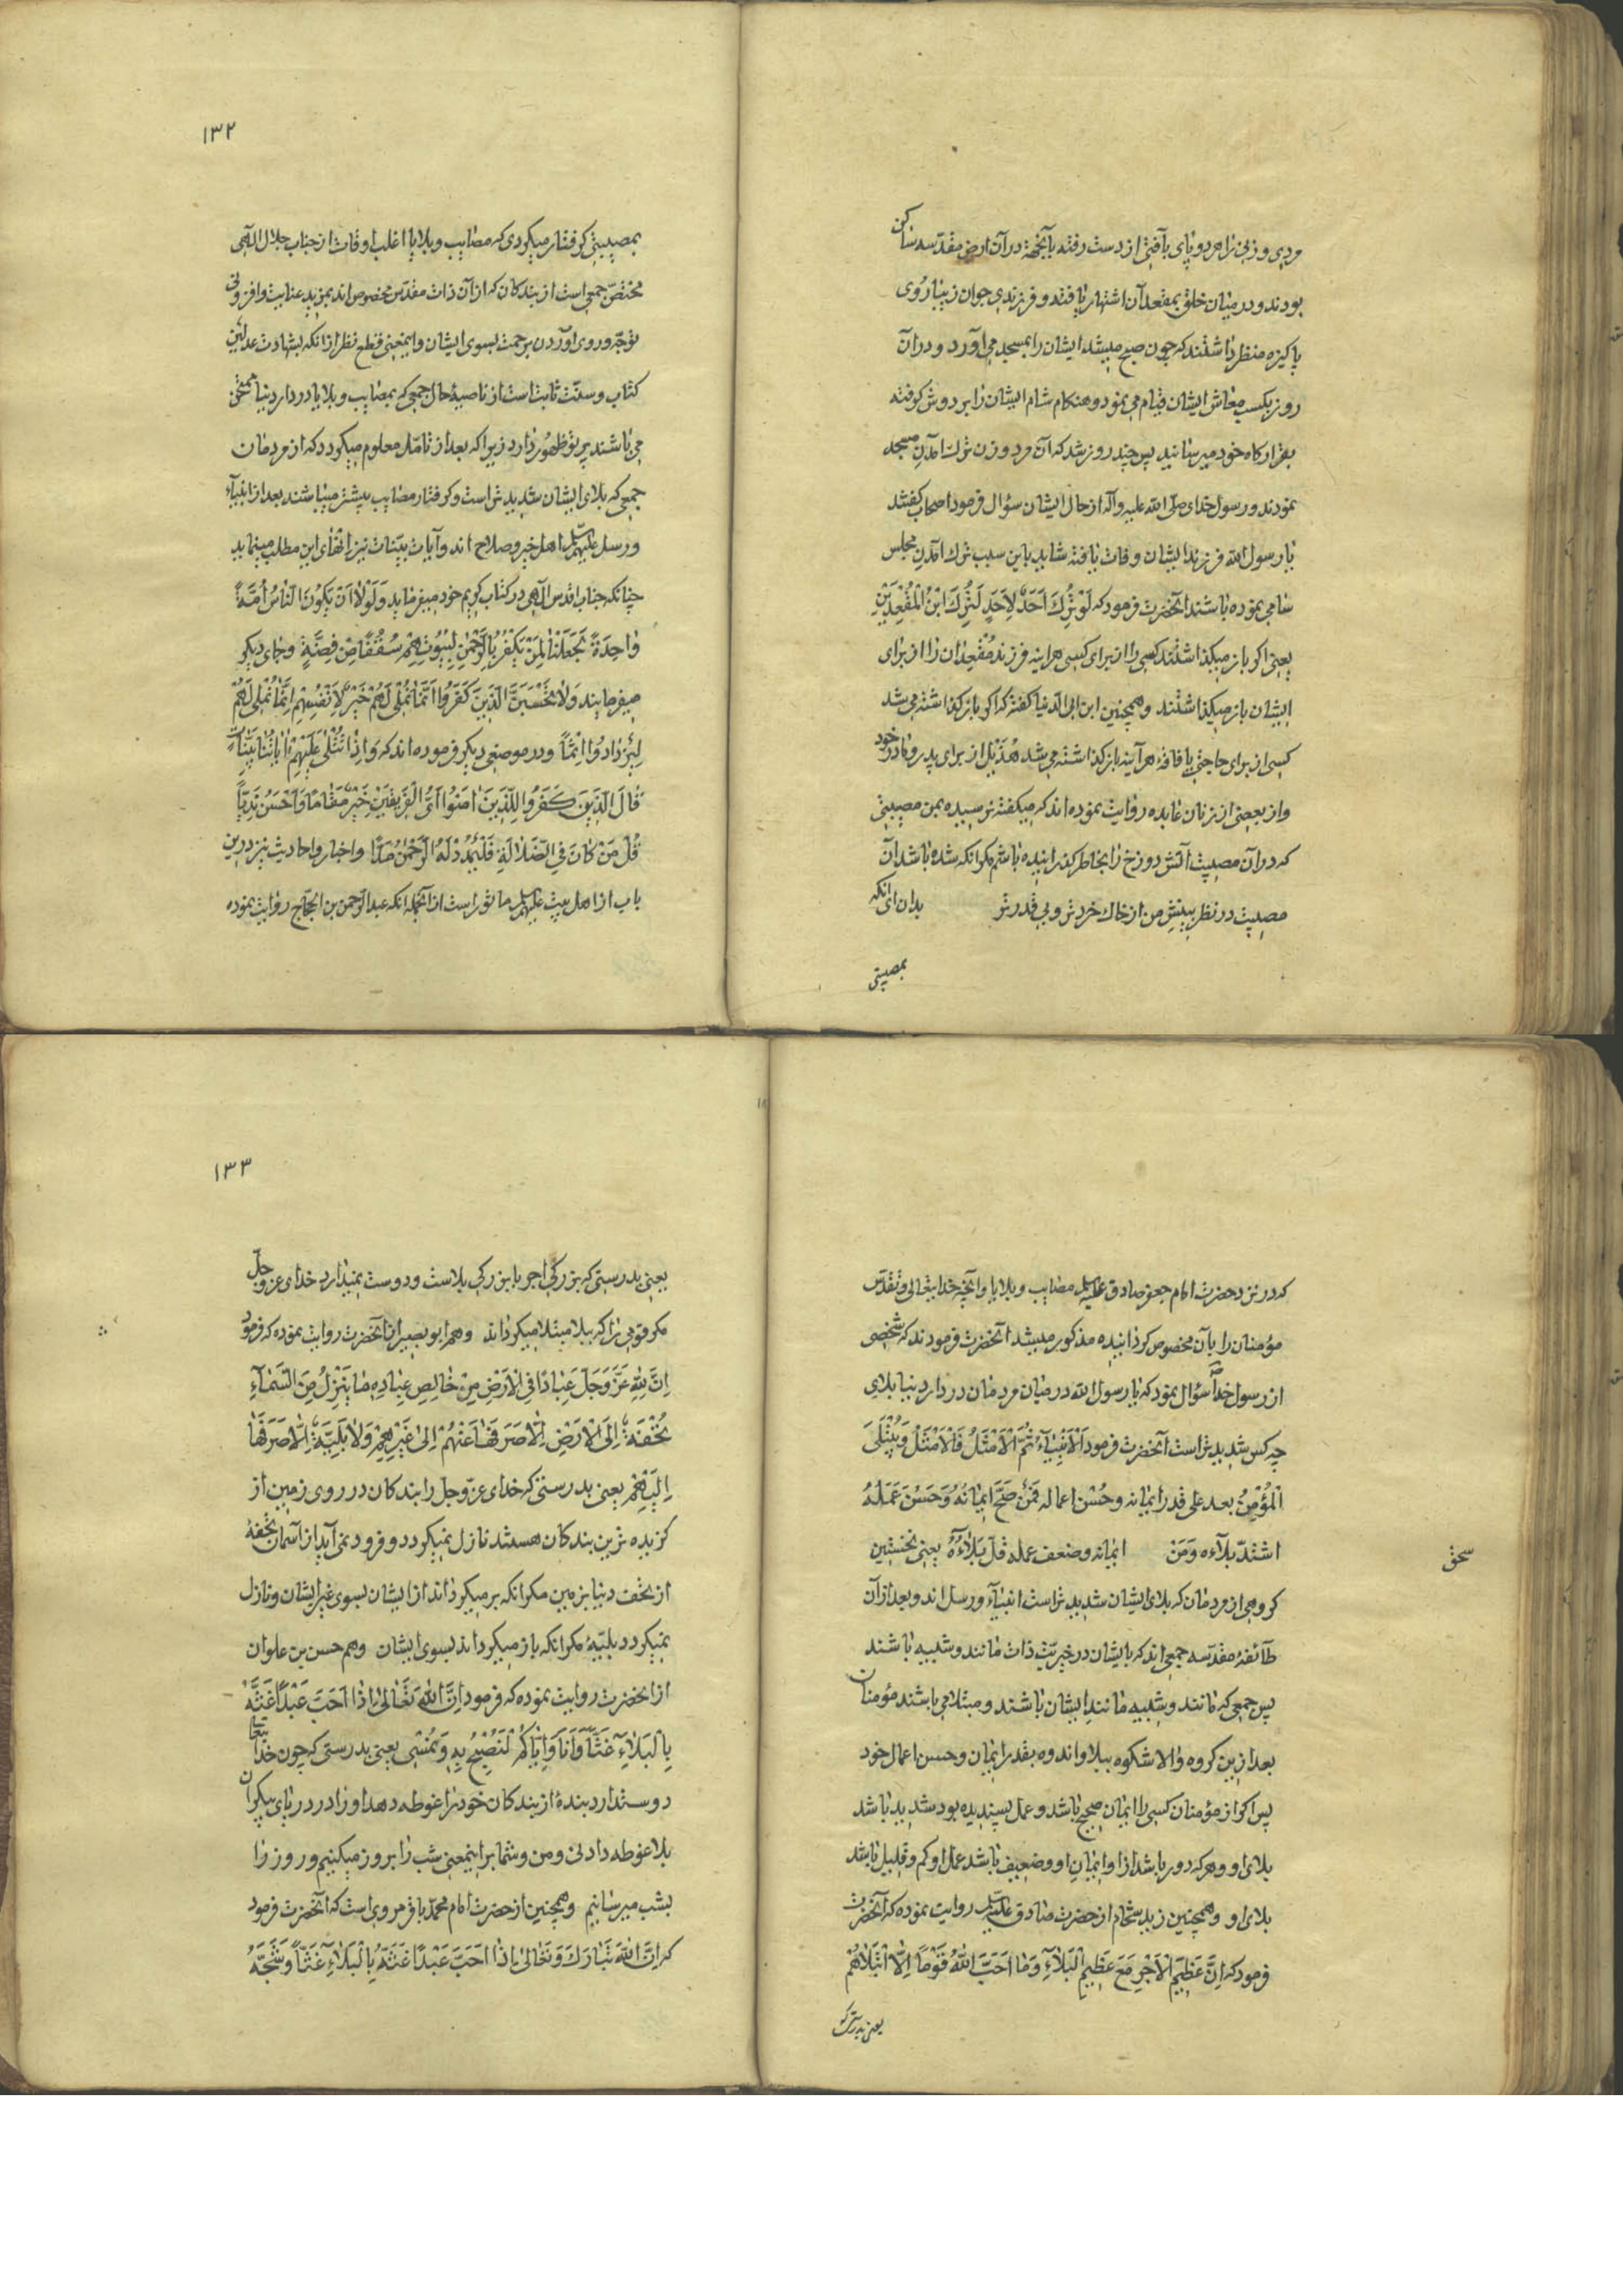 مردی و زنی را هر دو پای بآفتی از دست رفته بآنجهة در آن ارض مقدّسه ساکن
بودند و در میان خلق بمقعدان اشتهار یافتند و فرزندی جوان زیبا روی
پاکیزه منظر داشتند که چون صبح میشد ایشان را بمسجد می آورد و در آن
روز بکسب معاش ایشان قیام می نمود و هنکام شام ایشان را بر دوش کرفته
بقرارکاه خود میرسانید پس چند روز شد که آن مرد و زن ترك آمدن مسجد
نمودند و رسول خدای صلّی الله علیه و آله از حال ایشان سؤال فرمود اصحاب کفتند
یا رسول الله فرزند ایشان وفات یافته شاید باین سبب ترك آمدن مجلس
سامی نموده باشند آنحضرت فرمود که لَوْ تُرِكَ اَحَدٌ لِاَحَدٍ لَتُرِكَ ابْنُ الْمُقْعَدَیْنِ
یعنی اکر باز میکذاشتند کسی را از برای کسی هراینه فرزند مُقْعِدان را از برای
ایشان باز میکذاشتند وهمچنین ابن ابی الدنیا کفته که اکر باز کذاشته می شد
کسی از برای حاجتی یا فاقهٔ هرآینه باز کذاشته می شد هُذَیْل از برای پدر و مادر خود
و از بعضی از زنان عابده روایت نموده اند که میکفته نرسیده بمن مصیبتی
که در آن مصیبت آتش دوزخ را بخاطر کذرانیده باشم مکر آنکه شده باشد آن
مصیبت در نظر بینش من از خاك خردتر و بی قدرتر بدان ای آنکه
بمصیبتی
۱۳۲
بمصیبتی کرفتار میکردی که مصایب و بلایا اغلب اوقات از جناب جلال الهی
مختصّ جمعی است از بندکان که از آن ذات مقدّس مخصوص اند بمزید عنایت و افزونی
توجّه و روی آوردن برحمت بسوی ایشان و اینمعنی قطع نظر از آنکه بشهادت عدلین
کتاب و سنّت ثابت است از ناصیهٔ حال جمعی که بمصایب و بلایا در دار دنیا ممتحن
می باشند پرتو ظهور دارد زیرا که بعد از تامّل معلوم میکردد که از مردمان
جمعی که بلای ایشان شدیدتر است و کرفتار مصایب بیشتر میباشند بعد از انبیآء
و رسل علیهم السلم اهل خیر و صلاح اند و آیات بیّنات نیز انهای این مطلب مینماید
چنانکه جناب اقدس الهی در کتاب کریم خود میفرماید وَلَوْلا اَنْ یَکُونَ النّاسُ اُمَّةً
واحِدَةً لَجَعَلْنا لِمَنْ یَکْفُرُ بِالرَّحْمنِ لِبُیُوتِهِمْ سُقُفًا مِنْ فِضَّةٍ و جای دیکر
میفرمایند وَلا یَحْسَبَنَّ الَّذِینَ کَفَرُوا اَنَّما نُمْلِی لَهُمْ خَیْرٌ لِاَنْفُسِهِمْ اِنَّما نُمْلِی لَهُمْ
لِیَزْدادُوا اِثْماً و در موضعی دیکر فرموده اند که وَاِذا تُتْلی عَلَیْهِمْ ایاتُنا بَیِّناتٍ
قالَ الَّذِینَ کَفَرُوا لِلَّذِینَ امَنُوا اَیُّ الْفَرِیقَیْنِ خَیْرٌ مَقاماً وَاَحْسَنُ نَدِیّاً
قُلْ مَنْ کانَ فِی الضَّلالَةِ فَلْیَمْدُدْ لَهُ الرَّحْمنُ مَدّاً و اخبار و احادیث نیز درین
باب از اهل بیت علیهم السلم ماثور است از آنجمله آنکه عبدالرحمن بن الحجاج روایت نموده
که در نزد حضرت امام جعفر صادق علیه السلم مصایب و بلایا و آنچه خدایتعالی و تقدّس
مؤمنان را بآن مخصوص کردانیده مذکور میشد آنحضرت فرمودند که شخصی
از رسول خدا ص سؤال نمود که یا رسول الله در میان مردمان در دار دنیا بلای
چه کس شدیدتر است آنحضرت فرمود اَلْاَنْبِیاءُ ثُمَّ الْاَمْثَلُ فَالْاَمْثَلُ وَیُبْتَلَی
الْمُؤْمِنُ بعد علی قدر ایمانه و حُسْنِ اعماله فَمَنْ صَحَّ ایمانُهُ وَحَسُنَ عَمَلُهُ
اشتدّ بلآءه وَمَنْ ایمانه وضعف عمله قلّ بَلاءُهُ یعنی نخستین
سخف
کروهی از مردمان که بلای ایشان شدیدتر است انبیآء و رسل اند و بعد از آن
طآئفهٔ مقدّسه جمعی اند که بایشان در خیریّت ذات مانند و شبیه باشند
پس جمعی که مانند و شبیه مانند ایشان باشند و مبتلا می باشند مؤمنان
بعد ازین کروه والا شکوه ببلا و اندوه بقدر ایمان و حسن اعمال خود
پس اکر از مؤمنان کسی را ایمان صحیح باشد و عمل پسندیده بود شدید باشد
بلای او و هر که دور باشد از او ایمان او وضعیف باشد عمل او کم و قلیل باشد
بلای او و همچنین زید شحّام از حضرت صادق علیه السلم روایت نموده که آنحضرت
فرمود که اِنَّ عَظِیمَ الْاَجْرِ مَعَ عَظِیمِ الْبَلآءِ وَما اَحَبَّ اللهُ قَوْماً اِلَّا ابْتَلاهُمْ
یعنی بدرستی که
۱۳۳
یعنی بدرستی که بزرکی اجر با بزرکی بلاست و دوست نمیدارد خدای عزوجل
مکر قومی را که ببلا مبتلا میکرداند وهم ابو بصیر از آنحضرت روایت نموده که فرمود
اِنَّ لِلّهِ عَزَّ وَجَلَّ عِبادًا فِی الْاَرْضِ مِنْ خالِصِ عِبادِهِ ما یَنْزِلُ مِنَ السَّمآءِ
تُحْفَةٌ اِلَی الْاَرْضِ اِلّا صَرَفَها عَنْهُمْ اِلی غَیْرِهِمْ وَلا بَلِیَّةٌ اِلّا صَرَفَها
اِلَیْهِمْ یعنی بدرستی که خدای عزّ وجل را بندکان در روی زمین از
کزیده ترین بندکان هستند نازل نمیکردد و فرود نمی آید از آسمان تحفهٔ
از تحف دنیا بزمین مکر انکه برمیکرداند از ایشان بسوی غیر ایشان و نازل
نمیکردد بلیّهٔ مکر انکه باز میکرداند بسوی ایشان وهم حسن بن علوان
از انحضرت روایت نموده که فرمود اِنَّ اللهَ تَعالی اِذا اَحَبَّ عَبْدًا غَتَّهُ
بِالْبَلآءِ غَتّاً وَاَنَا وَاِیّاکُمْ لَنُصْبِحُ بِهِ وَنُمْسی یعنی بدرستی که چون خدایتعا
دوست دارد بندهٔ از بندکان خود را غوطه دهد او را در دریای بیکران
بلا غوطه دادنی و من و شما برا ینمعنی شب را بروز میکنیم و روز را
بشب میرسانیم وهمچنین از حضرت امام محمّد باقر مرویست که آنحضرت فرمود
که اِنَّ اللهَ تَبارَكَ وَتَعالی اِذا اَحَبَّ عَبْدًا غَتَّهُ بِالْبَلآءِ غَتّاً وَثَجَّهُ